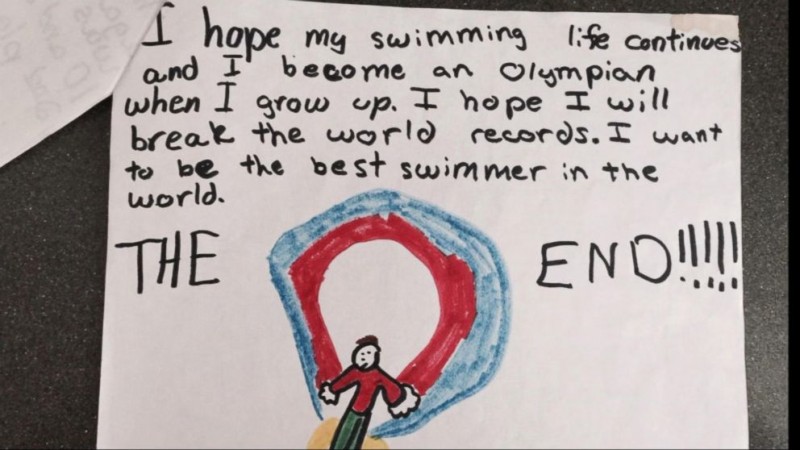 I hope my swimming life continues
and I become an Olympian
when I grow up. I hope I will
break the world records. I want
to be the best swimmer in the
world.
THE END!!!!!